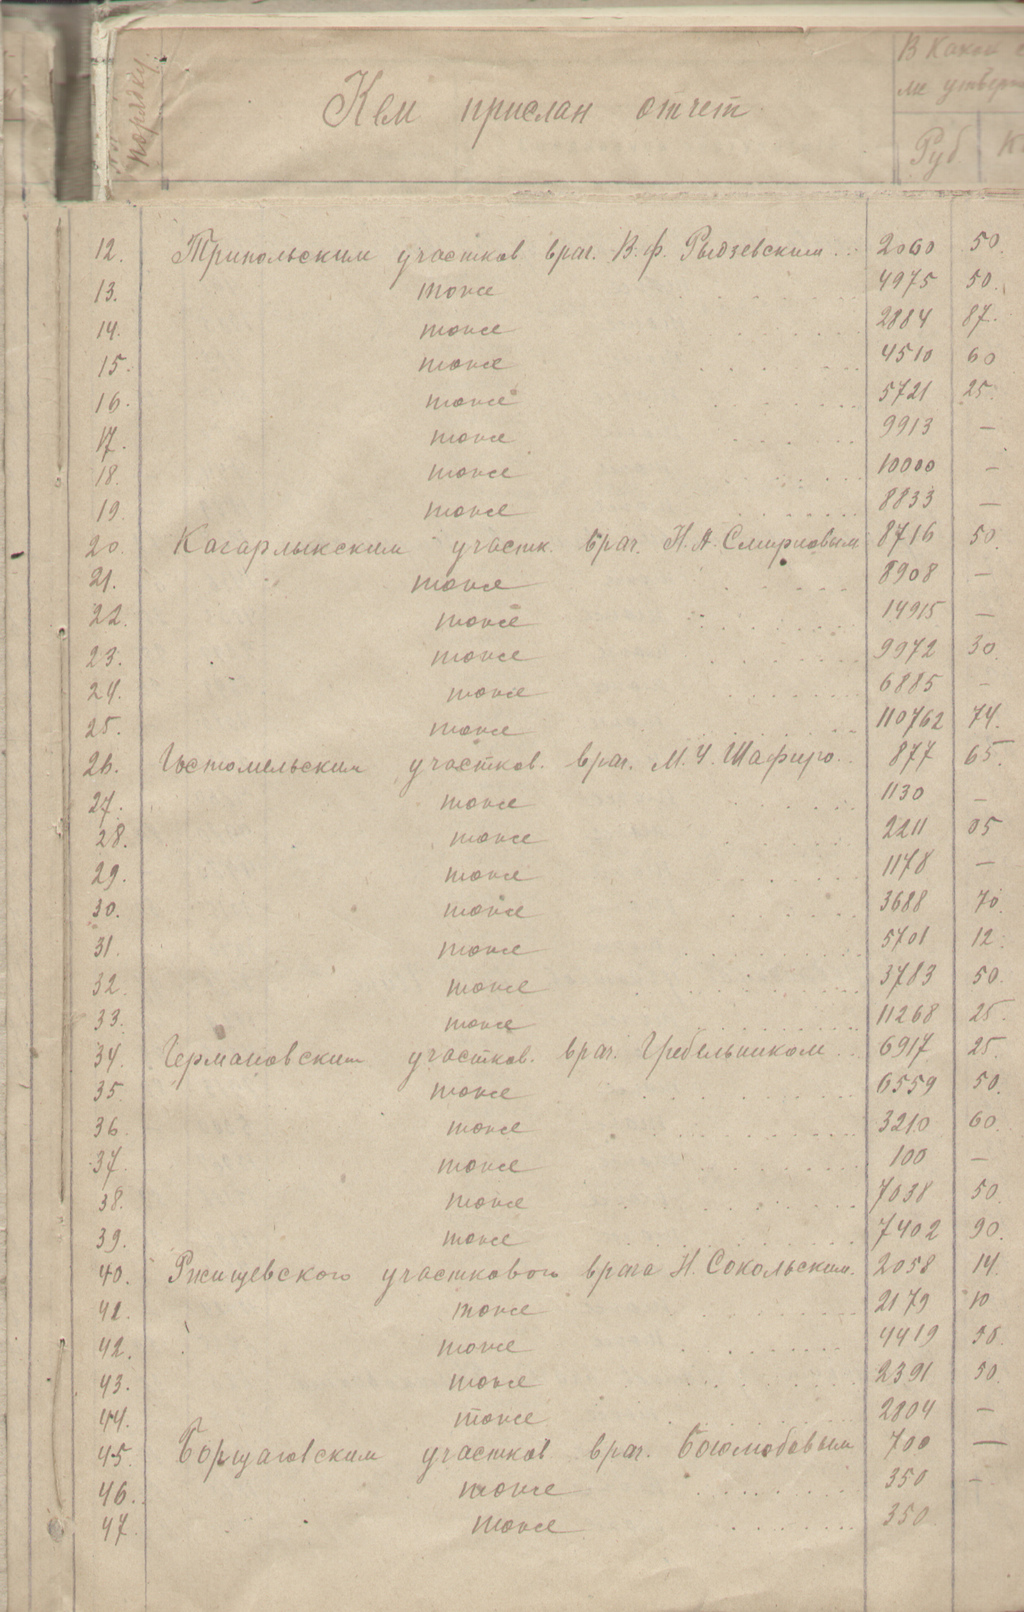 порядку
Кем прислан отчет
В какой
ле утвер
Руб К
12. Трипольским участков врач. В. Ф. Рыдзевским 2060 50.
13. тоже 4975 50.
14. тоже 2884 87.
15. тоже 4510 60
16. тоже 5721 25.
17. тоже 9913 —
18. тоже 10000 —
19. тоже 8833 —
20. Кагарлыкским участк. врач. Н. А. Смирновым 8716 50.
21. тоже 8908 —
22. тоже 14915 —
23. тоже 9972 30.
24. тоже 6885 —
25. тоже 110762 74.
26. Гостомельским участков. врач. М. Ч. Шафиро 877 65.
27. тоже 1130 —
28. тоже 2211 05
29. тоже 1178 —
30. тоже 3688 70.
31. тоже 5701 12.
32. тоже 3783 50.
33. тоже 11268 25.
34. Германовским участков. врач. Гребельником 6917 25.
35. тоже 6559 50.
36. тоже 3210 60.
37. тоже 100 —
38. тоже 7038 50.
39. тоже 7402 90.
40. Ржищевского участкового врача Н. Сокольским. 2058 14.
41. тоже 2179 10
42. тоже 4419 50.
43. тоже 2391 50.
44. тоже 2804 —
45. Борщаговским участков врач. Боголюбовым 700 —
46. тоже 350 —
47. тоже 350